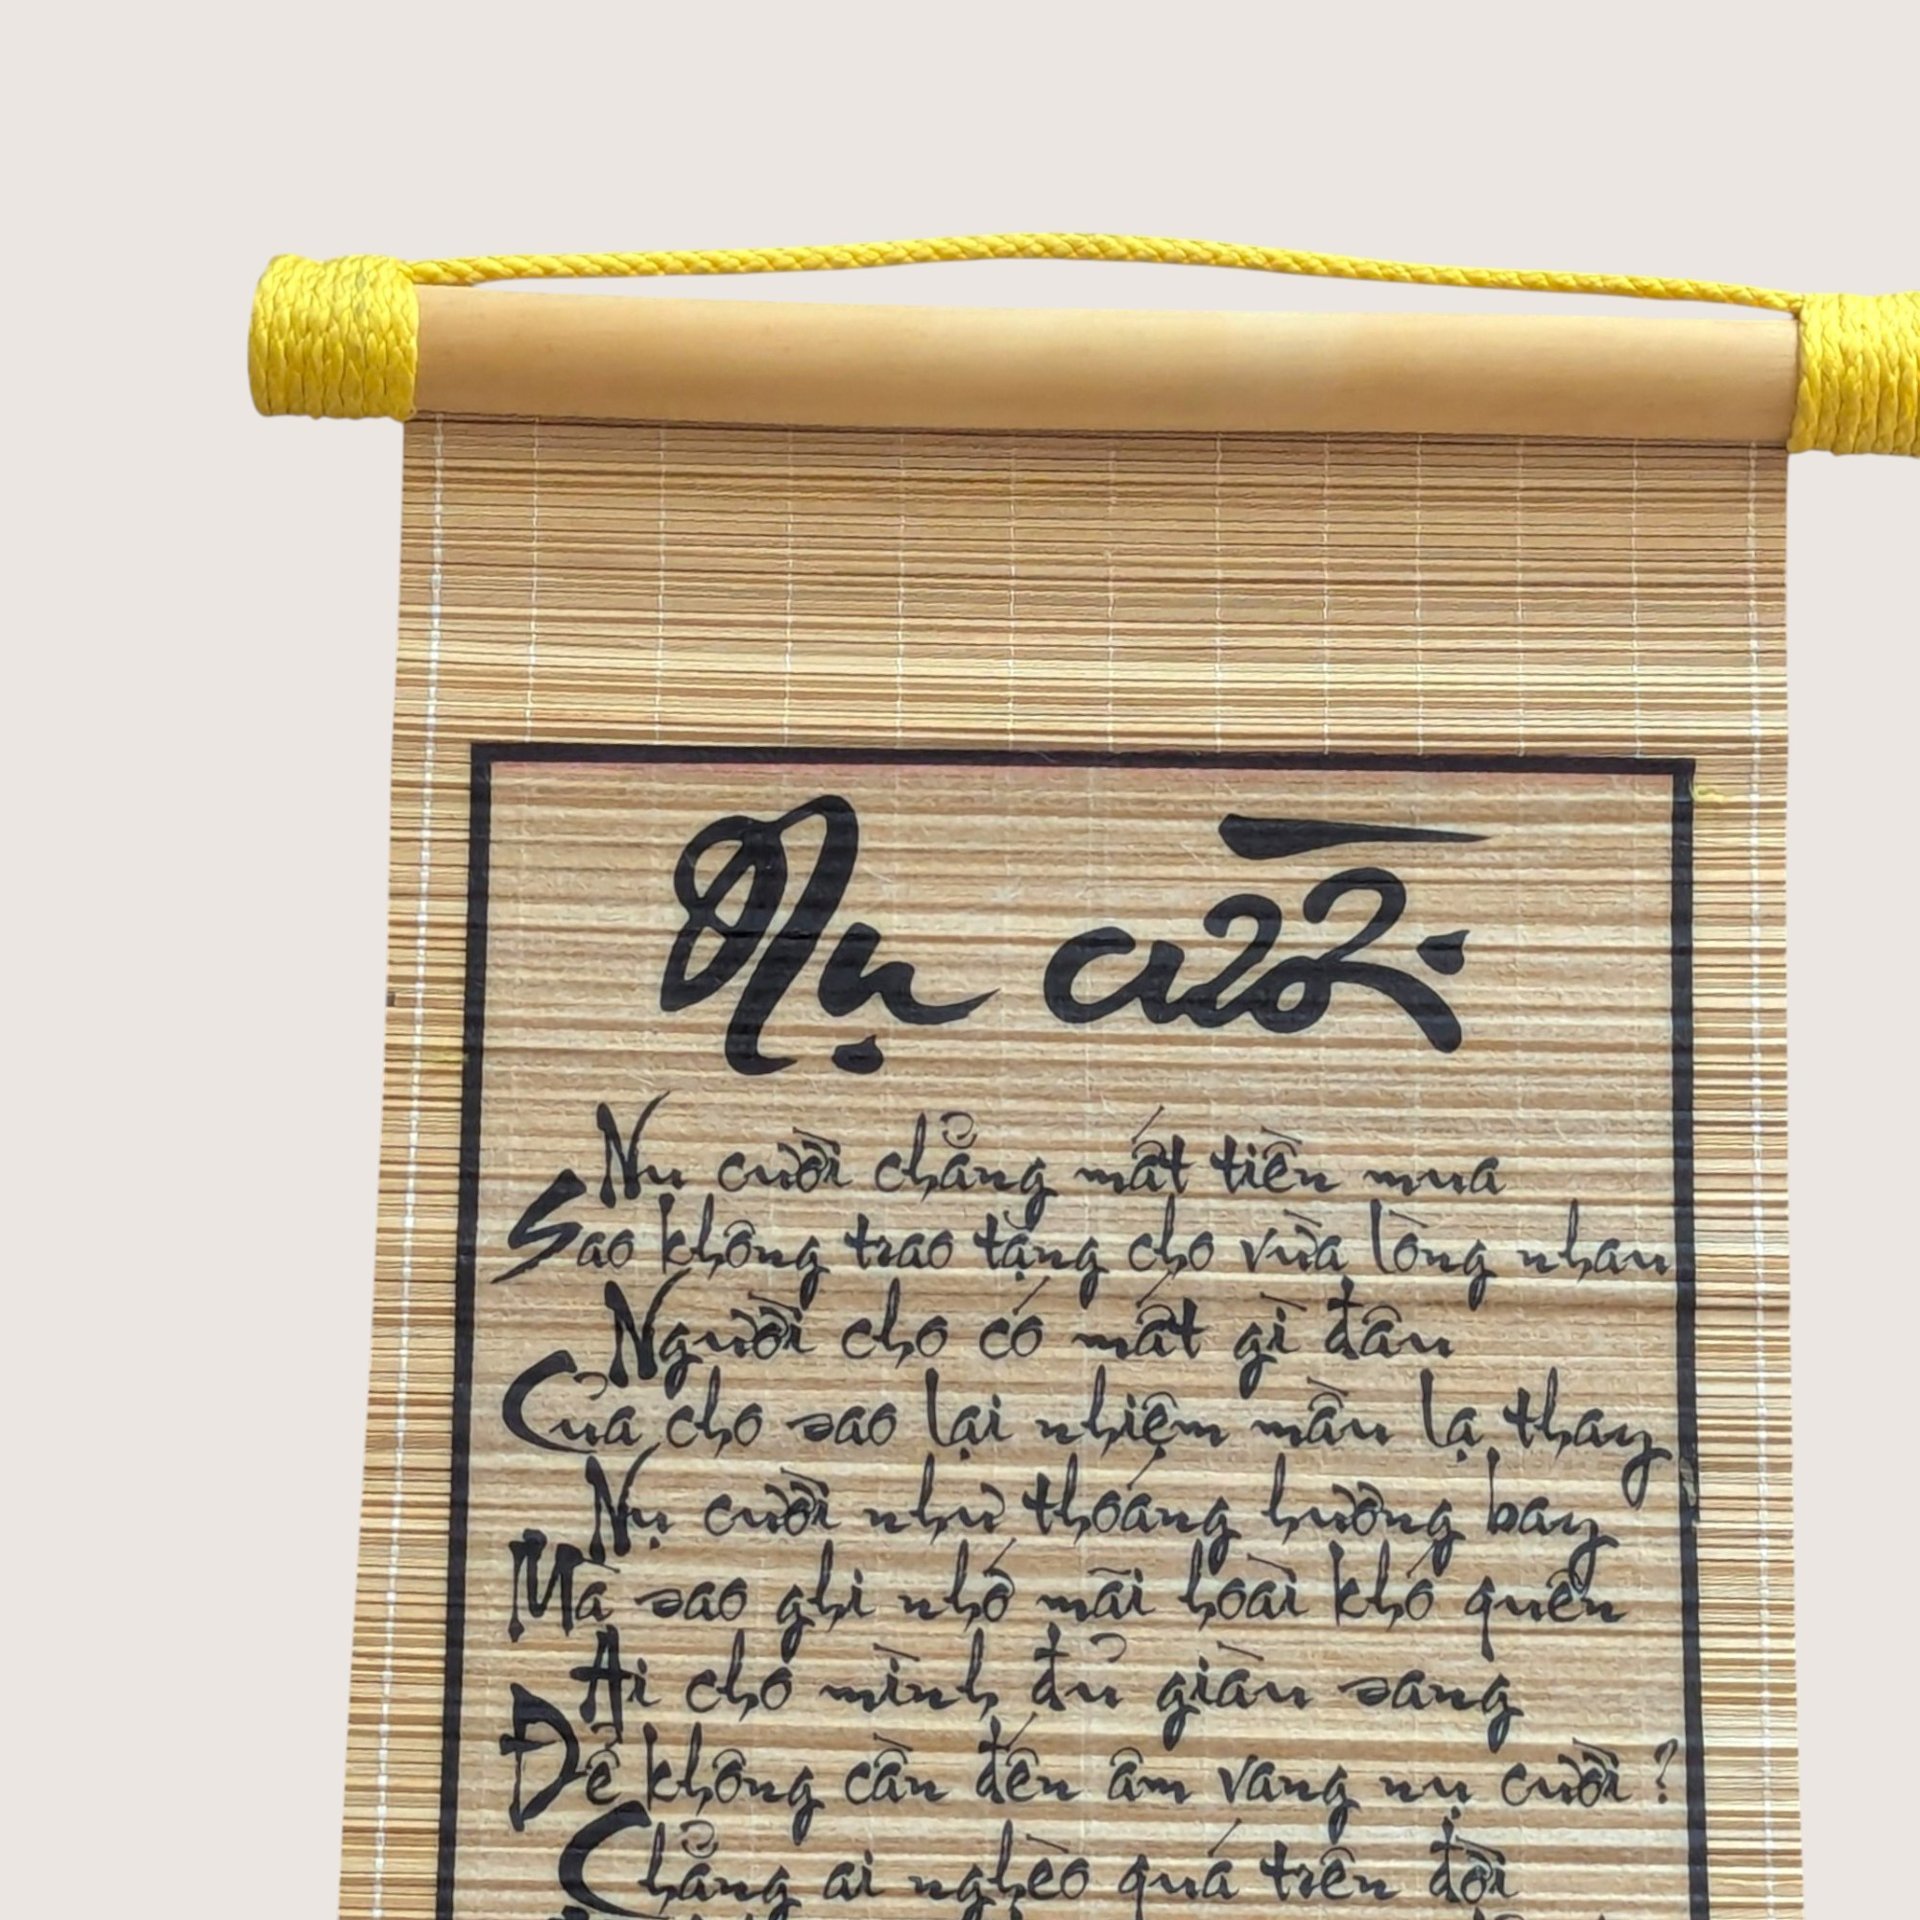 Nụ cười
Nụ cười chẳng mất tiền mua
Sao không trao tặng cho vừa lòng nhau
Người cho có mất gì đâu
Của cho sao lại nhiệm mầu lạ thay
Nụ cười như thoáng hương bay
Mà sao ghi nhớ mãi hoài khó quên
Ai cho mình đủ giàu sang
Để không cần đến âm vang nụ cười ?
Chẳng ai nghèo quá trên đời